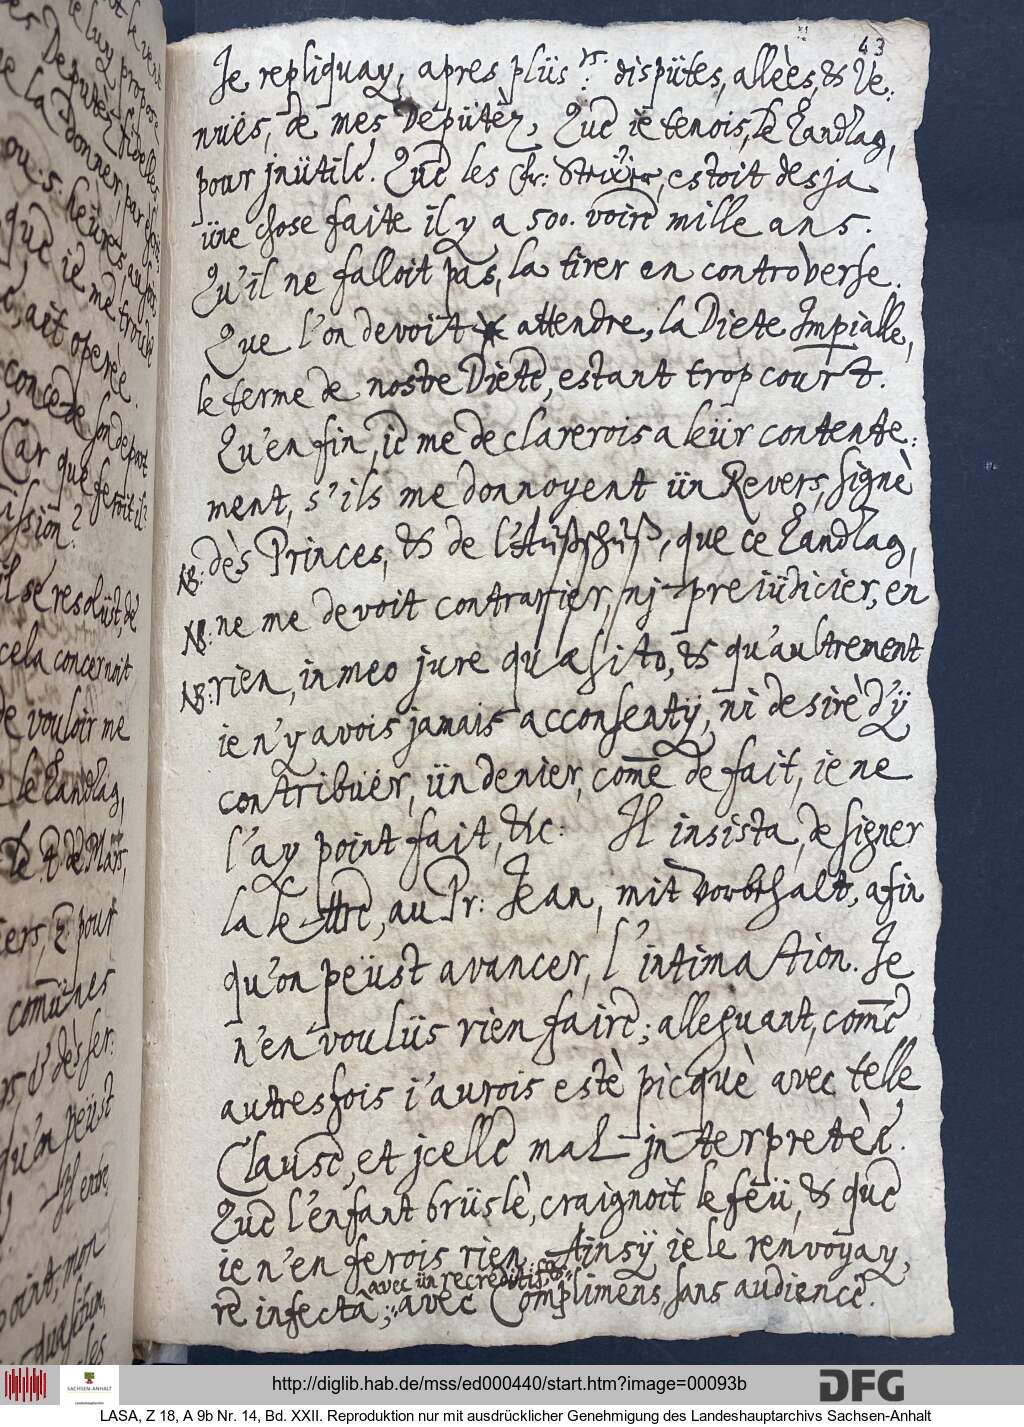 43
Je repliquay, apres plüs.rs. dispütes, allèes, & Ve:
nuës, de mes Députèz, Que ie tenois, le Landtag,
pour jnütile. Que les estoit desja
üne chose faite il y a 500. voire mille ans.
Qu'il ne falloit pas, la tirer en controverse.
Que l'on devoit attendre, la Diete Impialle,
le terme de nostre Diete, estant trop court.
Qu'en fin, ie me declarerois a leür contente:
ment, s'ils me donnoyent ün Revers, signè
NB: dès Princes, & de l'Außschuß, que ce Landtag,
NB: ne me devoit contrarier, nj prejüdicier, en
NB: rien, in meo jure quæsito, & qu'aultrement
ie n'y avois jamais acconsentÿ, ni desirè d'ÿ
contribuër, ün denier, come de fait, ie ne
l'ay point fait, &c: Il insista, de signer
la lettre, au Pr: Jean, mit vorbehalt, afin
qu'on peüst avancer, l'intimation. Je
n'en voulüs rien faire; alleguant, come
autresfois j'aurois estè picquè avec telle
Clause, et jcelle mal jnterpretèe.
Que l'enfant brüslè, craignoit le feü, & que
ie n'en ferois rien. Ainsÿ ie le renvoyay,
avec ün recreditif, &
re infecta; avec Complimens, sans audience.
ou. 5. heüres,
que ie me trouve
ait operèe.
concede son depart
Car que feroit il?
ission?
il se resolüst, de
cela concernoit
de vouloir me
le Landtag,
communes
qu'on peüst
point, mon
http://diglib.hab.de/mss/ed000440/start.htm?image=00093b
SACHSEN-ANHALT
DFG
LASA, Z 18, A 9b Nr. 14, Bd. XXII. Reproduktion nur mit ausdrücklicher Genehmigung des Landeshauptarchivs Sachsen-Anhalt